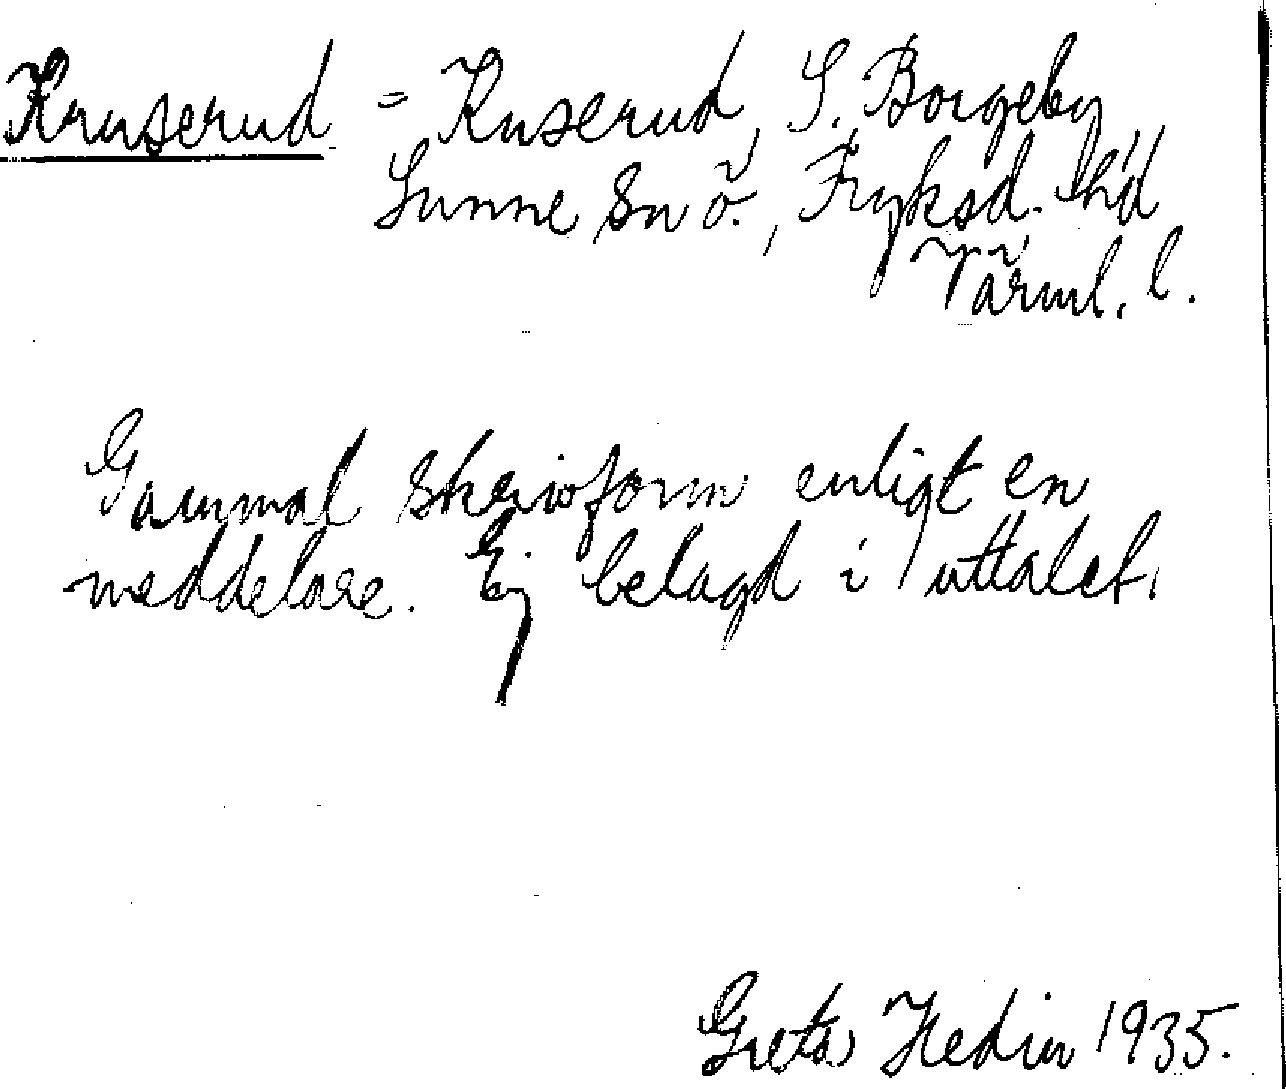 Kruserud = Kuserud, S. Borgeby,
Sunne sn ö., Fryksd. hd
Värml. l.
Gammal skrivform enligt en
meddelare. Ej belagd i uttalet.
Greta Hedin 1935.